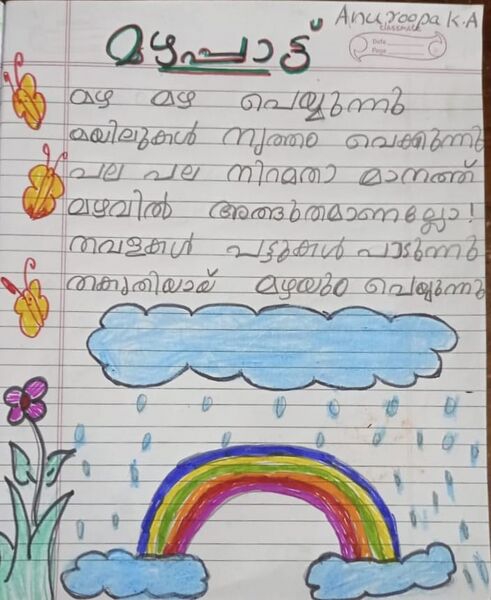 Anuroopa K.A
classmate
Date
Page
മഴപ്പാട്ട്
മഴ മഴ പെയ്യുന്നു
മയിലുകൾ നൃത്തം വെക്കുന്നു
പല പല നിറമതാ മാനത്ത്
മഴവിൽ അത്ഭുതമാണല്ലോ!
തവളകൾ പാട്ടുകൾ പാടുന്നു
തകൃതിയായ് മഴയും പെയ്യുന്നു